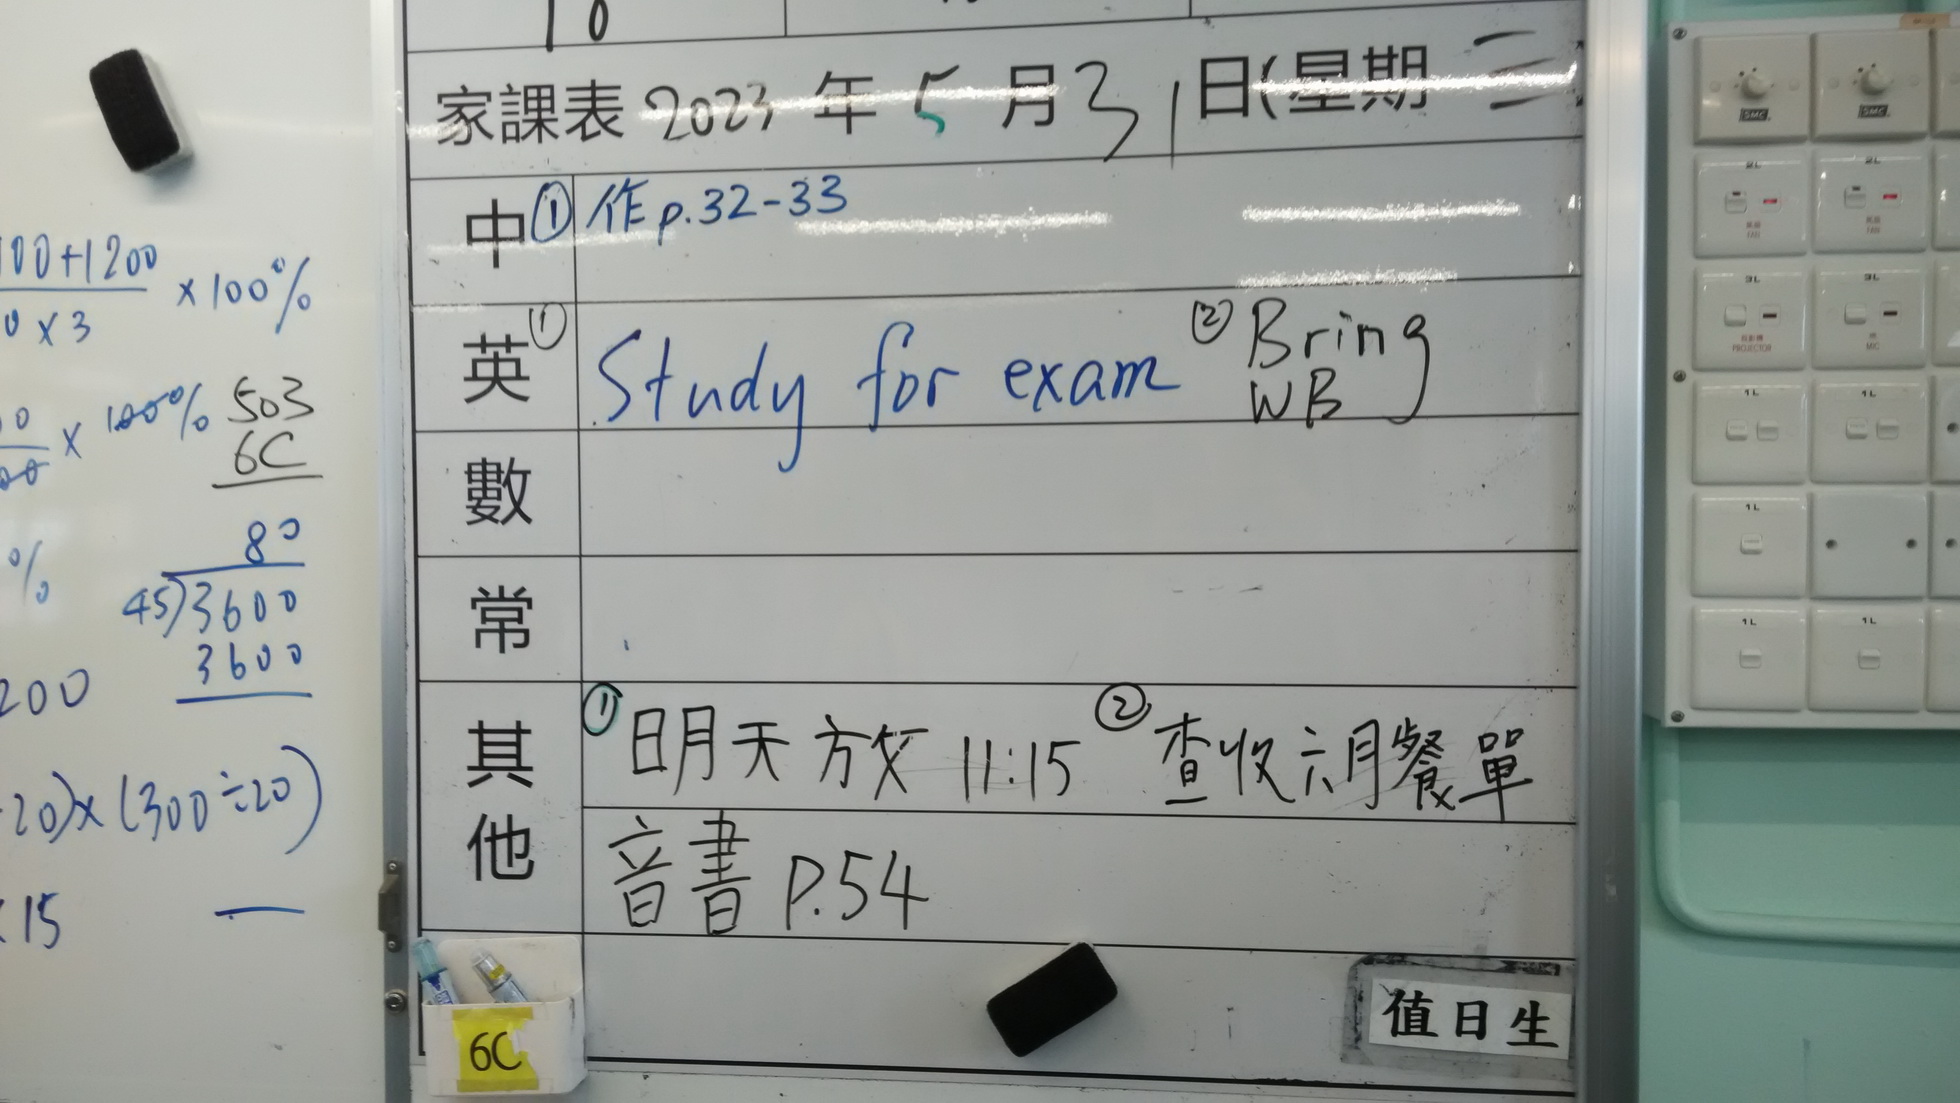 10
家課表 2023 年 5 月 31 日(星期 三
中 ① 作 p.32-33
英 ① Study for exam ② Bring WB
數
常
其他 ① 明天放 11:15 ② 查收六月餐單
音書 P.54
值日生
6C
00+1200
0 x 3
x 100%
x 100%
503
6C
%
80
45)3600
3600
200
20)x(300÷20)
15
SMC
SMC
2L
2L
FAN
FAN
3L
3L
PROJECTOR
MIC
1L
1L
1L
1L
1L